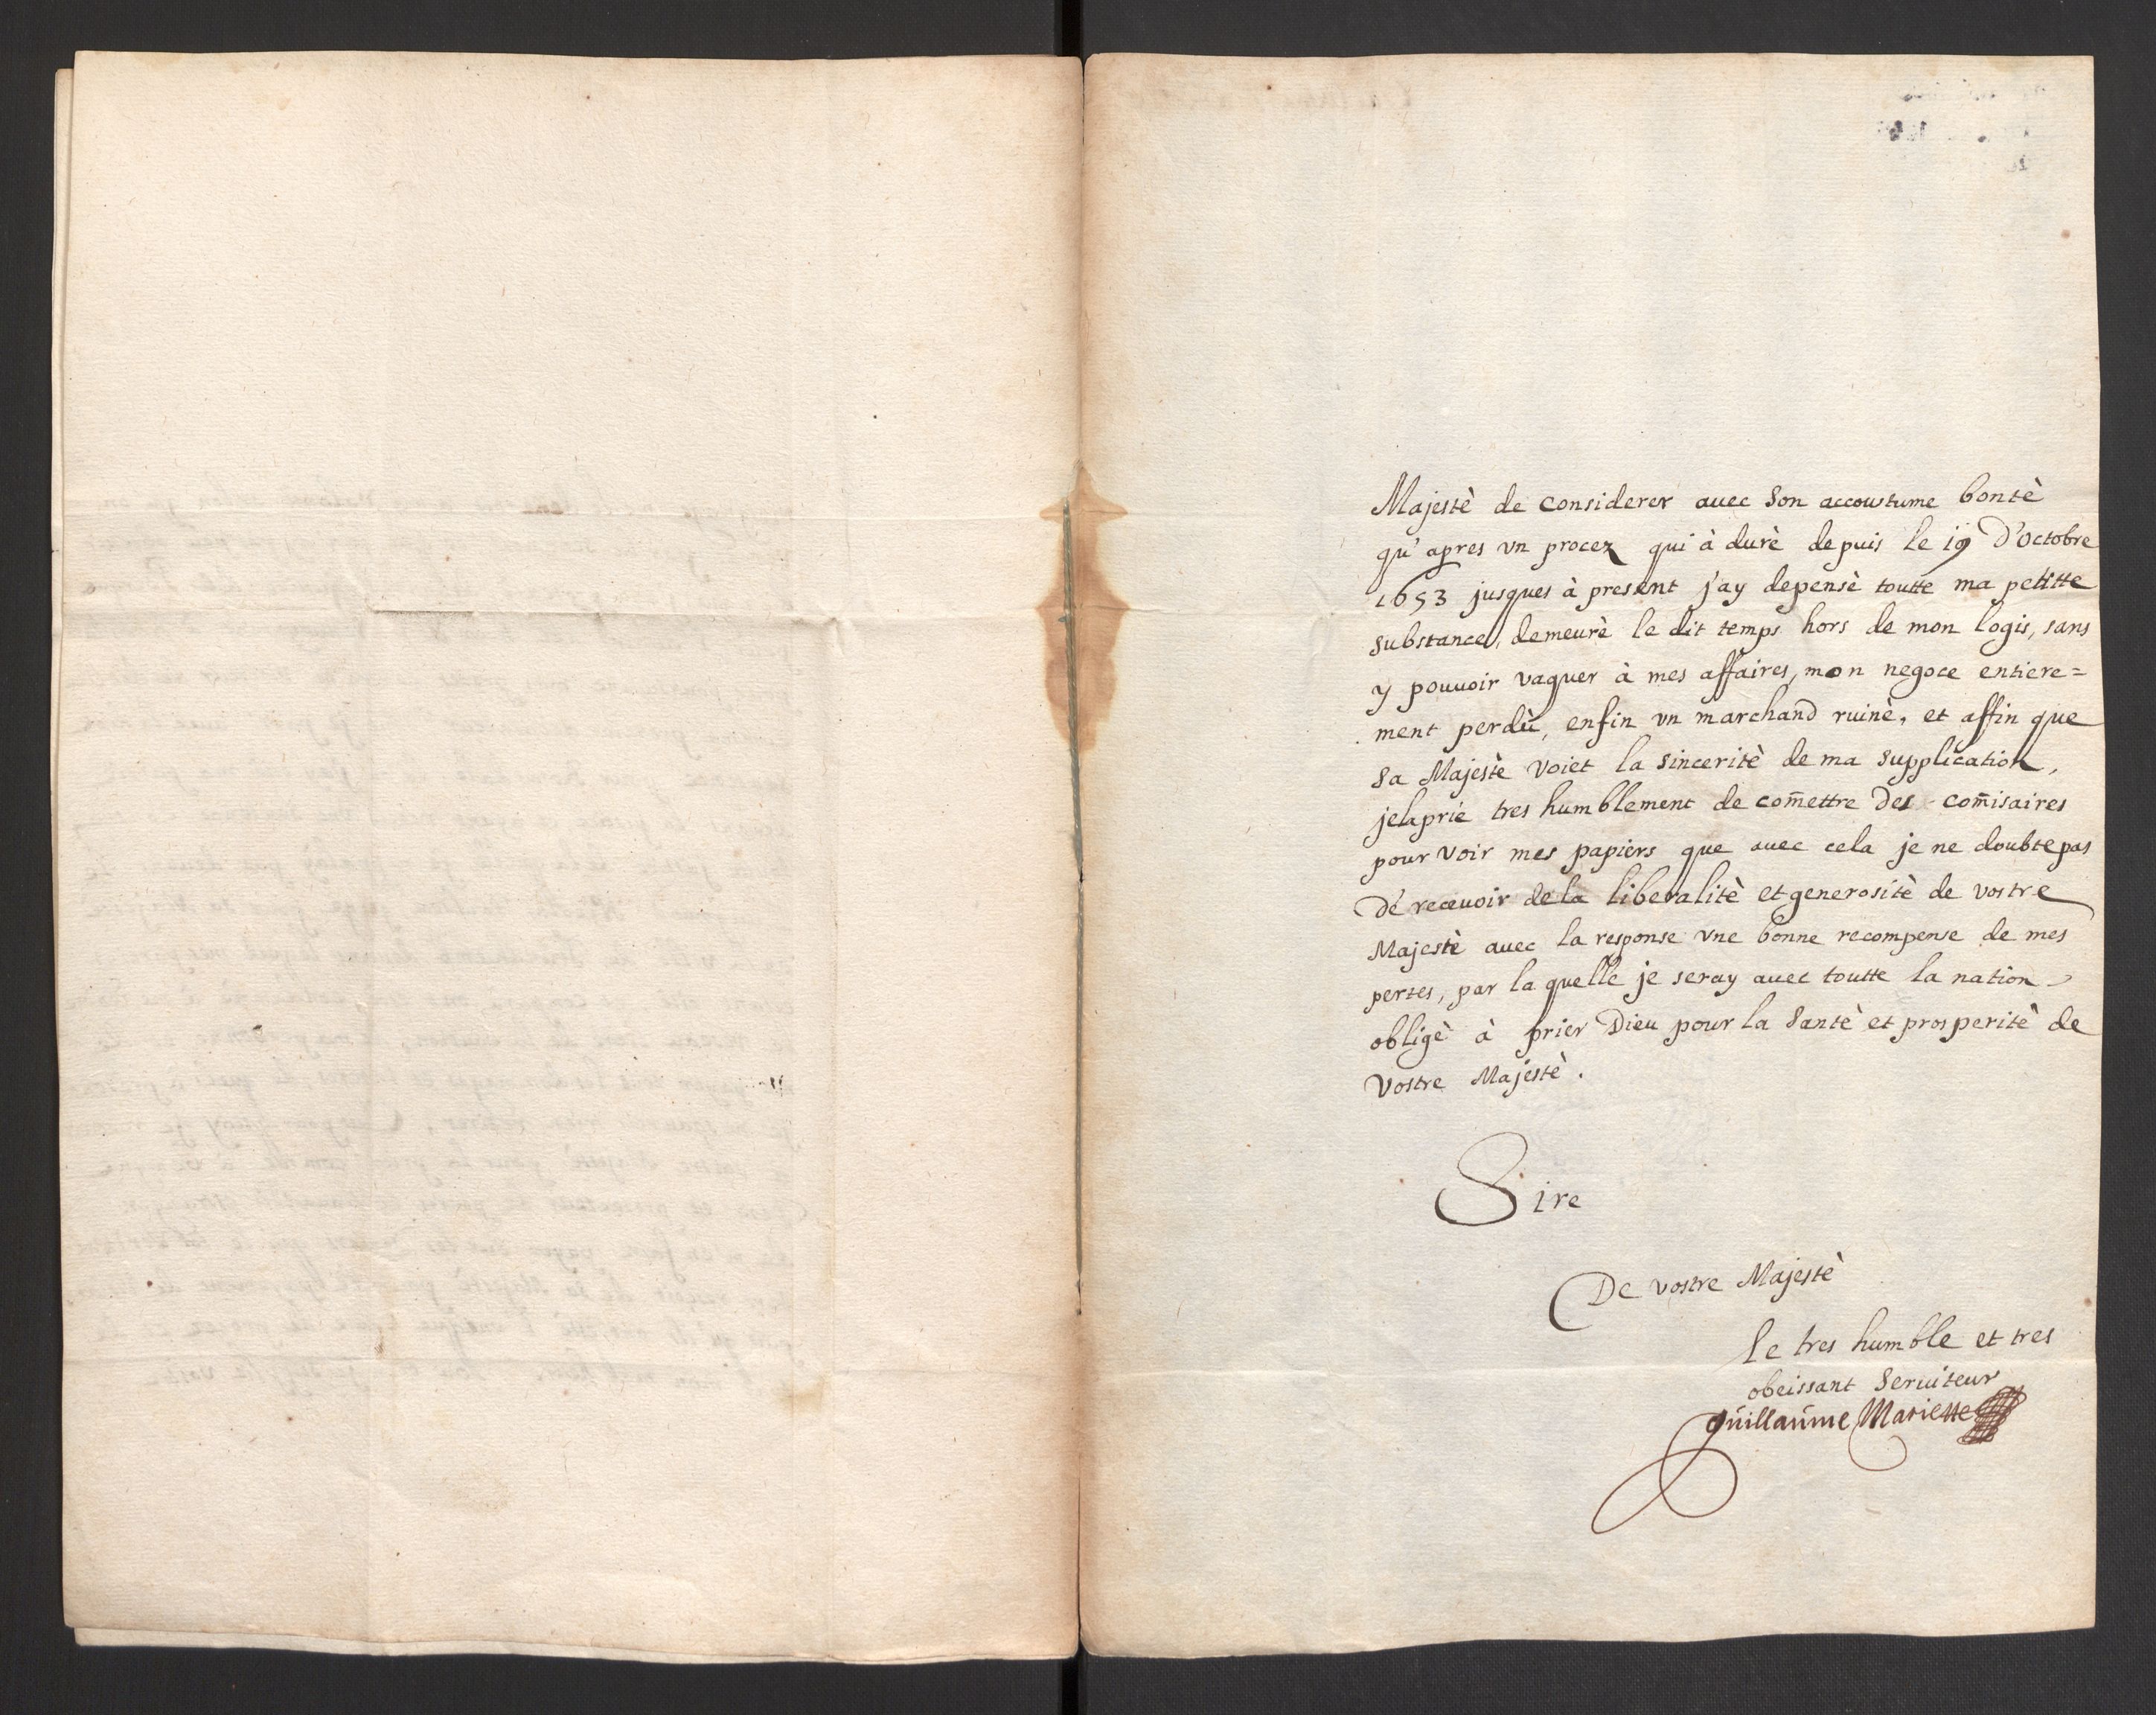 Majestè de considerer auec son accoustume bontè
qu'apres vn procez qui à durè depuis le 19 D'octobre
1653 jusques à present j'ay depensè toutte ma petitte
substance, demeurè le dit temps hors de mon logis, sans
y pouuoir vaquer à mes affaires, mon negoce entiere=
ment perdù, enfin vn marchand ruinè, et affin que
sa Majestè voiet la sinceritè de ma supplication,
jelaprie tres humblement de com̄ettre des com̄isaires
pour voir mes papiers que auec cela je ne doubte pas
De receuoir dela liberalitè et generositè de vostre
Majestè auec la response vne bonne recompense de mes
pertes, par la quelle je seray auec toutte la nation
obligè à prier Dieu pour la Santè et prosperitè de
Vostre Majestè.
Sire
De vostre Majestè
le tres humble et tres
obeissant Seruiteur
guillaume Mariette